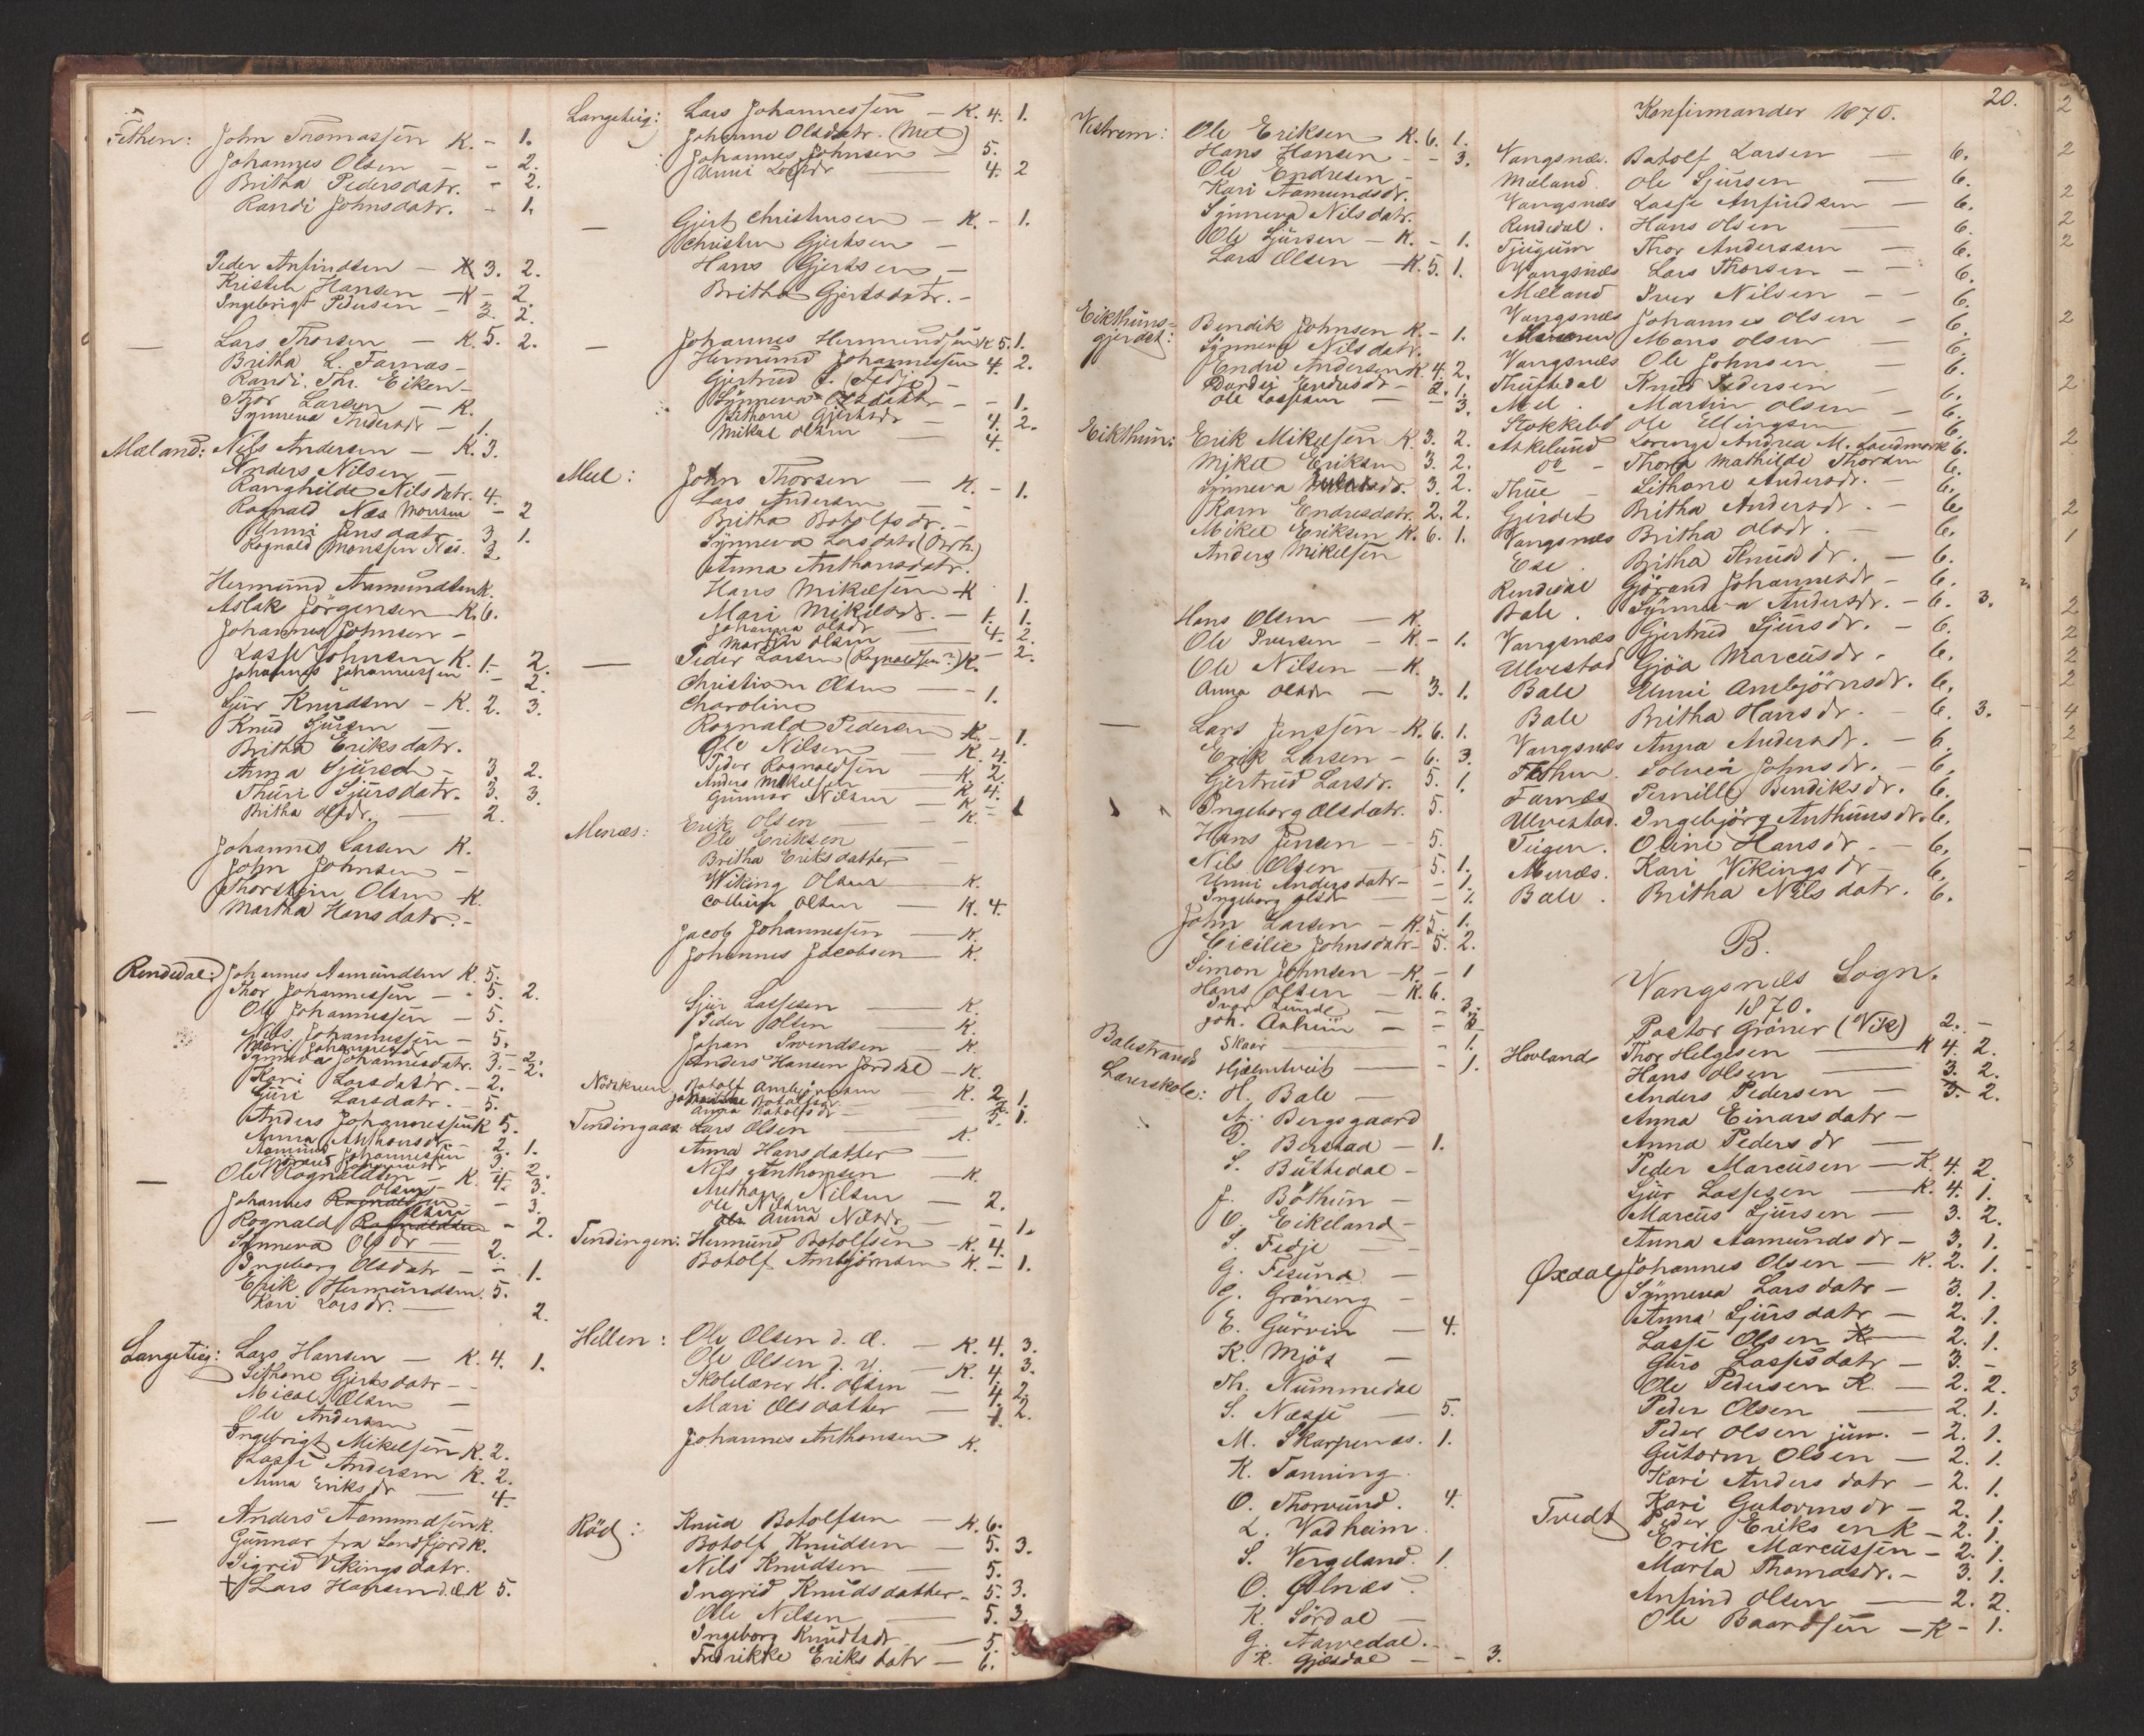 Fethen: John Thomassen K. - 1.
Johannes Olsen - - 2.
Britha Pedersdatr. - 2.
Randi Johnsdatr. - 1.
Peder Anfindsen - K 3. 2.
Kristen Hansen - K - 2.
Ingebrigt Pedersen - 3. 2.
— Lars Thorsen - K. 5. 2.
Britha L. Farnæs -
Randi Thr. Eiken -
Thor Larsen - K.
Synneva Andersdr - 1.
Mæland: Nils Andersen - K. 3.
Anders Nilsen -
Ranghilde Nilsdatr. 4.
Rognald Næs Monsen - 2
Unni Jensdatr 3. 1.
Rognald Monssen Næs. 3.
Hermund Aamundsen K.
Aslak Jörgensen K. 6.
Johannes Johnsen -
Lasse Johnsen K. 1 - 2.
Johannes Johannessen - 2.
— Sjur Knudsen - K. 2. 3.
Knud Sjursen
Britha Eriksdatr.
Anna Sjursdr - 3. 2.
Thuri Sjursdatr. 3. 3.
Britha Olsdr. — 2.
Johannes Larsen K.
John Johnsen -
Thorstein Olsen K.
Martha Hansdatr. -
Rendedal: Johannes Aamundsen K. 5.
Thor Johannessen - 5. 2.
Ole Johannessen - 5.
Nils Johannessen - 5.
Mari Johannesdr
Synneva Johannesdatr. 3. - 2.
Kari Larsdatr. - 2.
Guri Larsdatr. - 5.
Anders Johannessen K 5.
Anna Anthonsdr - 2. 1.
Aamund Johannessen 3.
Gjörand Johannesdr 2.
— Ole Rognaldsen - K. 4. 3.
Johannes Rognaldsen Olsen - 3.
Rognald Rognaldsen Olsen - 2.
Synneva Olsdr — 2.
Ingeborg Olsdatr - - 1.
Erik Hermundsen. 5.
Kari Larsdr. — 2.
Langeteig: Lars Hansen - K. 4. 1.
Sithone Gjertsdatr -
Micael Olsen -
Ole Andersen -
Ingebrigt Mikelsen K. 2.
Lasse Andersen K. 2.
Anna Eriksdr — 4.
— Anders Aamundsen K.
Gunnar fra Sondfjord K.
Sigrid Vikingsdatr.
+ Lars Hansen d. æ. K 5.
Langeteig: Lars Johannessen - K. 4. 1.
Johanne Olsdatr. (Mel)
Johannes Johnsen - 5.
Unni — 4. 2
— Gjert Christensen - K. - 1.
Christen Gjertsen -
Hans Gjertsen -
Britha Gjertsdatr. -
— Johannes Hermundsen K 5. 1.
Hermund Johannessen 4. 2.
Gjertrud J. (Fedje) -
Synneva Olsdatr - - 1.
Sithone Gjertsdr 4. 2.
Mikal Olsen — 4.
Mel: John Thorsen — K. - 1.
Lars Andersen - -
Britha Botolfsdr. -
Synneva Larsdatr
Anna Anthonsdatr.
Hans Mikelsen - K 1.
Mari Mikelsdr. - 1. 1.
Johanna Olsdr — 4. 2.
Martin Olsen — - 2.
— Peder Larsen (Rognaldsen?) K.
Christian Olsen - - 1.
Charoline —
Rognald Pedersen K. - 1.
Ole Nilsen - K. 4.
Peder Rognaldsen - K. 2.
Anders Mikelsen - K 4.
Gunnar Nilsen - K - 1
Menæs: Erik Olsen - - K.
Ole Eriksen -
Britha Eriksdatter
Wiking Olsen — K.
Olsen — K. 4.
Jacob Johannessen — K.
Johannes Jacobsen — K.
Sjur Lassesen — K.
Peder Olsen — K.
Johan Svendsen — K.
Anders Hansen Jorddal - K.
Botolf Ambjörnsen K. 2. 1.
Anna Botolfsdr — 5. 1.
Tendingaas: Lars Olsen — K.
Anna Hansdatter —
Nils Anthonsen — K.
Anthon Nilsen — 2.
Ole Nilsen
Anna Nilsdr — - 1.
Tendingen: Hermund Botolfsen - K. 4.
Botolf Ambjörnsen K. - 1.
Hellen: Ole Olsen d. æ. - K. 4. 3.
Ole Olsen d. y. - K. 4. 3.
Skolelærer H. Olsen - 4. 2.
Mari Olsdatter — 1. 2.
Johannes Anthonsen K.
Röd: Knud Botolfsen - K. 6.
Botolf Knudsen — 5. 3.
Nils Knudsen — 5.
Ingrid Knudsdatter. - 5. 3.
Ole Nilsen — 5. 3.
Ingeborg Knudtsdr — 5.
Fredrikke Eriksdatr — 6.
Vestrem: Ole Eriksen K. 6. 1.
Hans Hansen - - 3.
Ole Endresen -
Kari Aamundsdr.
Synneva Nilsdatr.
Ole Sjursen - K. - 1.
Lars Olsen - K. 5. 1.
Eikthuns-
gjerdet: Bendik Johnsen K. - 1.
Synneva Nilsdatr.
Endre Andersen K. 4. 2.
Endresdr - 2. 1.
Ole Lassesen — - 3.
Eikthun: Erik Mikelsen K. 3. 2.
Mikel Eriksen 3. 2.
Synneva 3. 2.
Karn Endresdatr. 2. 2.
Mikel Eriksen K. 6. 1.
Anders Mikelsen
Hans Olsen — K.
Ole Iversen - K. - 1.
Ole Nilsen - K.
Anna Olsdr — 3. 1.
— Lars Jenssen - K. 6. 1.
Erik Larsen - 6. 3.
Gjertrud Larsdr. 5. 1.
Ingeborg Olsdatr. 5.
Hans Jensen - 5.
Nils Olsen - 5. 1.
Unni Andersdatr - - 1.
Ingeborg Olsdr — - 1.
John Larsen - K. 5. 1.
Cicilie Johnsdatr - 5. 2.
Simon Johnsen - K. - 1
Hans Olsen - K. 6.
Iver Lunde - - 3.
Joh. —
Skaar — - 1.
Hjelmtveit — - 1.
Balestrands
Lærerskole: H. Bale -
A. Bergsgaard
D. Berstad - 1.
S. Büthedal -
J. Böthun -
O. Eikeland -
S. Fedje - -
G. Fesund -
G. Gröneng -
E. Gurvin — 4.
K. Mjös —
Th. Nummedal
S. Næsse — 5.
M. Skarpenæs. 1.
K. Tanning.
O. Thorvund. 4.
L. Vadheim.
S. Vergeland. 1.
O. Ølnæs.
K. Sördal —
G. Aarvedal. -
K. Gjesdal - - 3.
20.
Konfirmander 1870.
Vangsnæs. Batolf Larsen — 6.
Mæland. Ole Sjursen — 6.
Vangsnæs Lasse Anfindsen — 6.
Rendedal. Hans Olsen — 6.
Tjugum Thor Anderssen — 6.
Vangsnæs Lars Thorsen - - 6.
Mæland Iver Nilsen - - 6.
Vangsnæs Johannes Olsen - 6.
Mons Olsen — 6.
Vangsnæs Ole Johnsen — 6.
Knud Pedersen — 6.
Mel. Martin Olsen - 6.
Stokkebö Ole Ellingsen — 6.
Askelund Lorense Andrea M. Landmark 6.
do - Thora Mathilde Thorsen 6.
Thue - Sithone Andersdr. - 6.
Gjerdet Britha Andersdr. - 6
Vangsnæs Britha Olsdr. — 6.
Ese. Britha Knudsdr. - 6.
Rendedal Gjörand Johannesdr - 6.
Bale. Synneva Andersdr. - 6. 3.
Vangsnæs Gjertrud Sjursdr. - 6.
Ulvestad Gjöa Marcusdr. - 6.
Bale Unni Ambjörnsdr. 6.
Bale Britha Hansdr. - 6. 3.
Vangsnæs Anna Andersdr. - 6.
Fethen. Solvei Johnsdr. - 6.
Farnæs Pernille Bendiksdr. 6.
Ulvestad. Ingebjörg Anthunsdr. 6.
Teigen. Oline Hansdr. - 6.
Menæs. Kari Vikingsdr - 6.
Bale. Britha Nilsdatr. 6.
B.
Vangsnæs Sogn.
1870.
Pastor Gröner (Vik) 2. -
Hovland Thor Helgesen — K 4. 2.
Hans Olsen — 3. 2.
Anders Pedersen — 3. 2.
Anna Einarsdatr -
Anna Pedersdr —
Peder Marcusen — K. 4. 2.
Sjur Lassesen — K. 4. 1.
Marcus Sjursen — 3. 2.
Anna Aamundsdr - 3. 1.
Øxdal Johannes Olsen — K. 2. 1.
Synneva Larsdatr - 3. 1.
Anna Sjursdatr - 2. 1.
Lasse Olsen K — 2. 1.
Guro Lassesdatr - 3. -
Ole Pedersen K. — 2. 2.
Peder Olsen — 2. 1.
Peder Olsen jun. - 2. 1.
Gutorm Olsen — 2. 1.
Kari Andersdatr - 2. 1.
Kari Gutormsdr - 2. 1.
Tvedt Peder Eriksen K - 2. 1.
Erik Marcussen - 2. 1.
Marta Thomasdr. - 3. 1.
Anfind Olsen — 2. 2.
Ole Baardsen - K - 1.